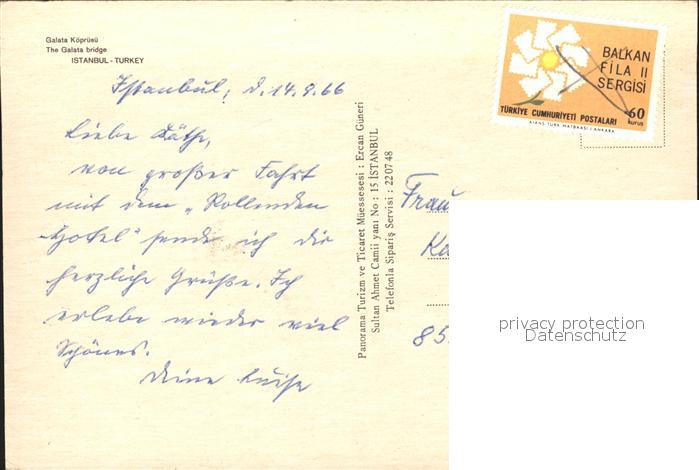 Galata Köprüsü
The Galata bridge
ISTANBUL - TURKEY
Istanbul, d. 14.9.66
Liebe Käthe,
von großer Fahrt
mit dem „Rollenden
Hotel" sende ich dir
herzliche Grüße. Ich
erlebe wieder viel
Schönes.
Deine Luise
Panorama Turizm ve Ticaret Müessesesi : Ercan Güneri
Sultan Ahmet Camii yanı No : 15 İSTANBUL
Telefonla Sipariş Servisi : 22 07 48
BALKAN
FİLA II
SERGİSİ
TÜRKİYE CUMHURİYETİ POSTALARI
60
kurus
AJANS-TÜRK MATBAASI / ANKARA
Frau
85
privacy protection
Datenschutz